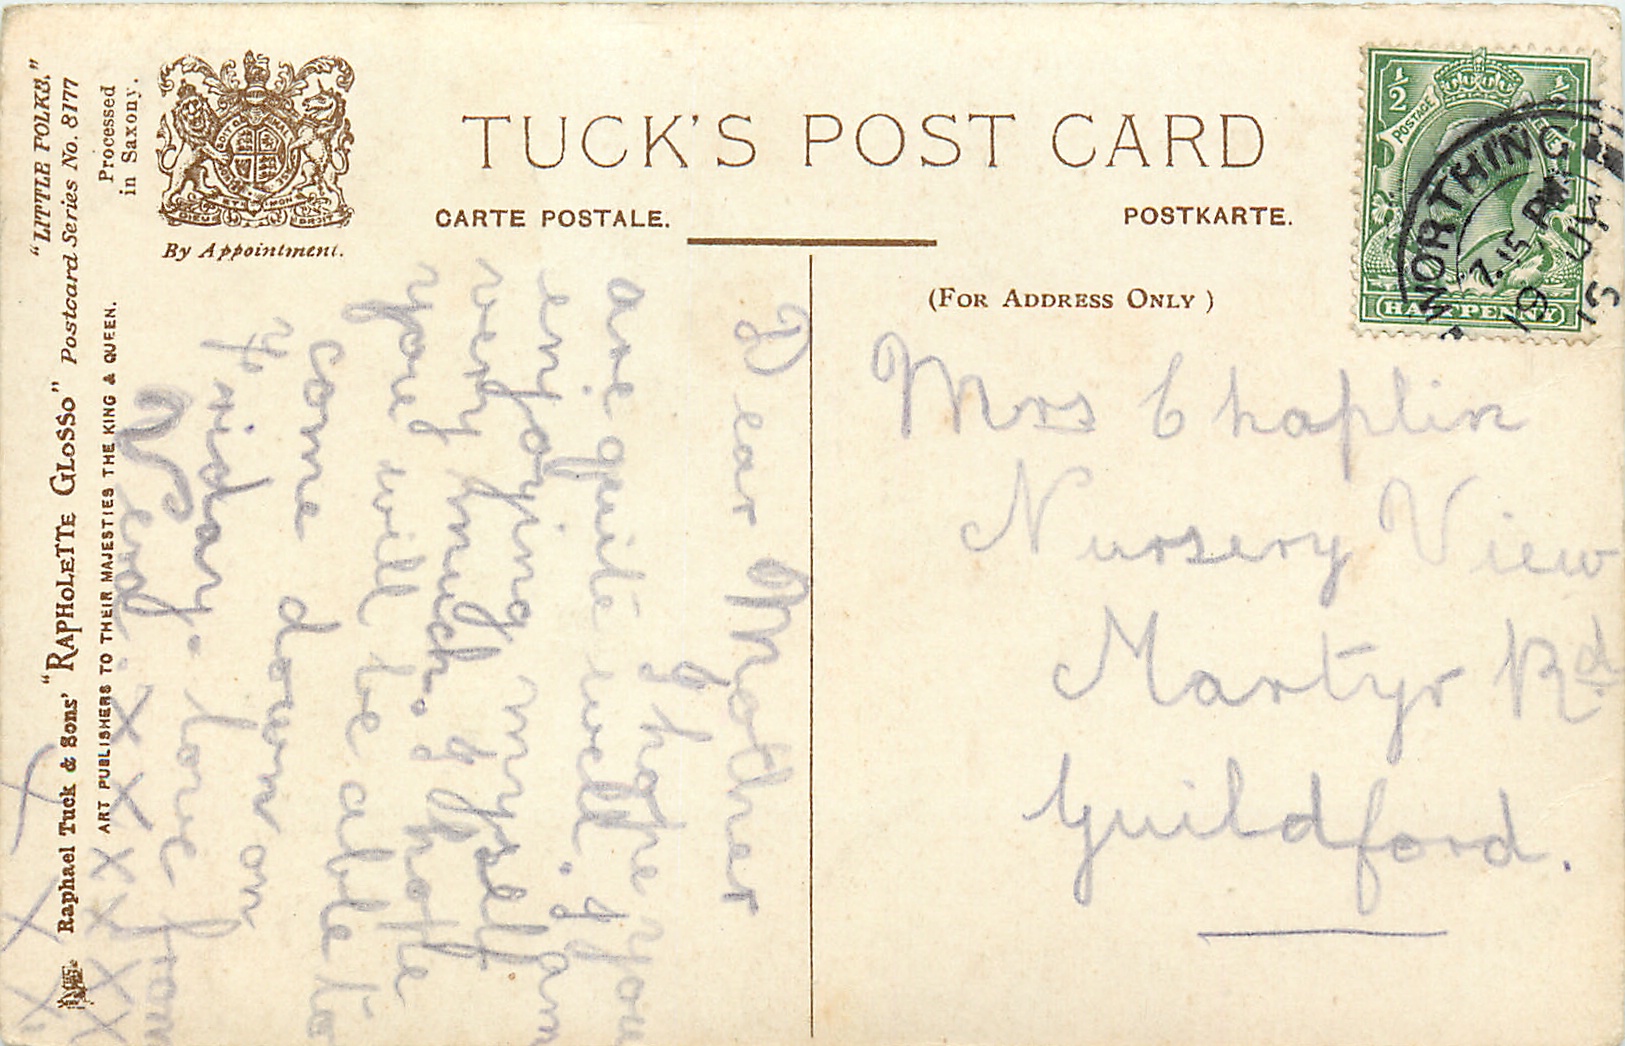 "LITTLE FOLKS."
Raphael Tuck & Sons' "RAPHOLETTE GLOSSO" Postcard Series No. 8177
ART PUBLISHERS TO THEIR MAJESTIES THE KING & QUEEN.
Processed
in Saxony.
DIEU ET MON DROIT
By Appointment.
TUCK'S POST CARD
CARTE POSTALE.
POSTKARTE.
(FOR ADDRESS ONLY)
½ ½
POSTAGE
HALFPENNY
WORTHING
7.15 PM
19 JY
15
Dear Mother
I hope you
are quite well. I am
enjoying myself
very much. I hope
you will be able to
come down on
Friday. love from
X X X X X X
X X X
Mrs Chaplin
Nursery View
Martyr Rd
Guildford.